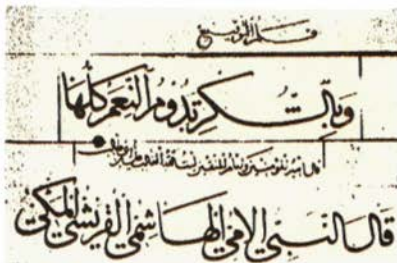 قلم التوقيع
وبالشكر تدوم النعم كلها
قال النبي الامي الهاشمي القريشي المكي